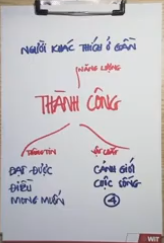 NGƯỜI KHÁC THÍCH Ở GẦN
NĂNG LƯỢNG
THÀNH CÔNG
ĐẠT ĐƯỢC
ĐIỀU
MONG MUỐN
CẢNH GIỚI
CUỘC SỐNG
4